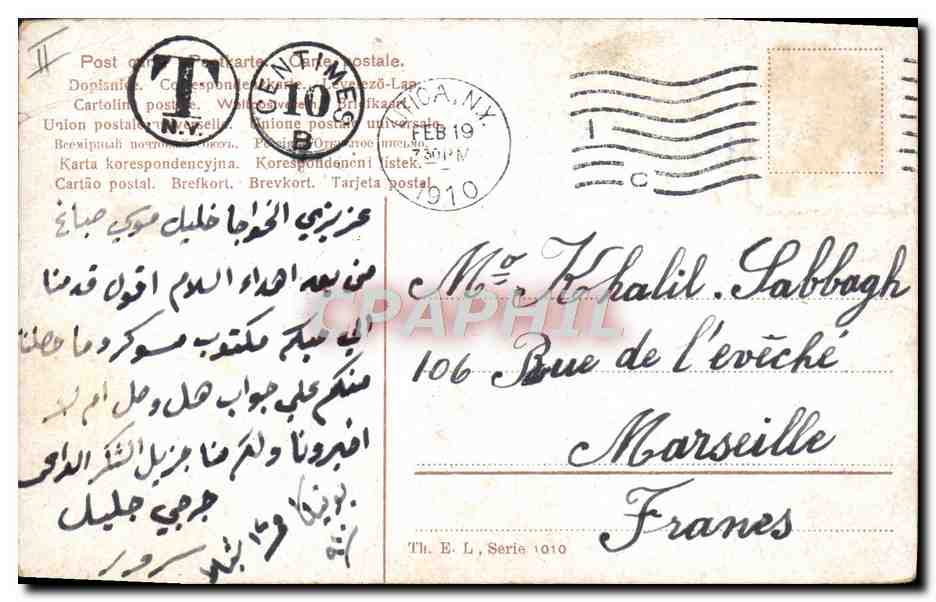 II
Post carte. Postkarte. Carte postale.
Dopisnice. Correspondenzkarte. Levelező-Lap.
Cartolina postale. Weltpostverein. Briefkaart.
Union postale universelle. Unione postale universale.
Karta korespondencyjna. Korespondenční listek.
Cartão postal. Brefkort. Brevkort. Tarjeta postal.
T
N.Y.
CENTIMES
10
B
UTICA, N.Y.
FEB 19
7 30 PM
1910
I
C
عزيزي الخواجا خليل موسى صباغ
من بعد اهداء السلام اقول قدمنا
الى حبكم مكتوب مسوكر وما وصلنا
منكم على جواب هل وصل ام لا
اخبرونا ولكم منا جزيل الشكر الداعي
جرجي جليل
سرور
Mr Khalil. Sabbagh
106 Rue de l'evêché
Marseille
Franes
CPAPHIL
Th. E. L., Serie 1010